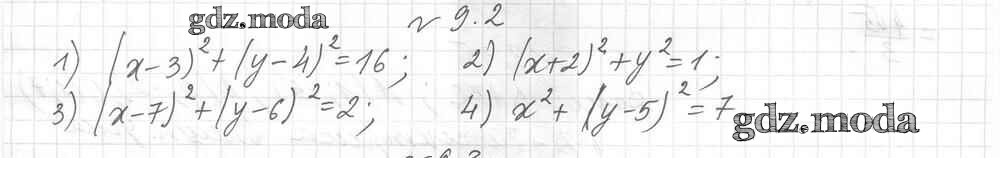 gdz.moda
№ 9.2
1) (x-3)²+(y-4)²=16; 2) (x+2)²+y²=1;
3) (x-7)²+(y-6)²=2; 4) x²+(y-5)²=7
gdz.moda